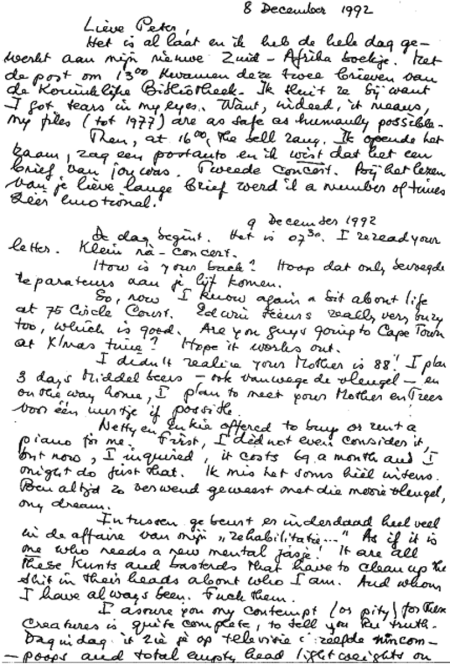 8 December 1992
Lieve Peter,
Het is al laat en ik heb de hele dag ge-
werkt aan mijn nieuwe Zuid-Afrika boekje. Met
de post om 13⁰⁰ kwamen deze twee brieven van
de Koninklijke Bibliotheek. Ik sluit ze bij want
I got tears in my eyes. Want, indeed, it means,
my files (tot 1977) are as safe as humanly possible.
Then, at 16⁰⁰, the bell rang. Ik opende het
raam, zag een postauto en ik wist dat het een
brief van jou was. Tweede concert. Bij het lezen
van je lieve lange brief werd ik a number of times
zéér emotional.
9 December 1992
De dag begint. Het is 07³⁰. I reread your
letter. Klein na-concert.
How is your back? Hoop dat only bevoegde
reparateurs aan je lijf komen.
So, now I know again a bit about life
at 75 Circle Court. Edwin seems really very busy
too, which is good. Are you guys going to Cape Town
at X/mas time? Hope it works out.
I didn't realize your Mother is 88! I plan
3 days Middelbeers – ook vanwege de vleugel – en
on the way home, I plan to meet your Mother en Trees
voor één uurtje if possible.
Netty en Enkie offered to buy or rent a
piano for me. First, I did not even consider it,
but now, I inquired, it costs 69 a month and I
might do just that. Ik mis het soms héél intens.
Ben altijd zo verwend geweest met die mooie vleugel,
my dream.
Intussen gebeurt er inderdaad heel veel
in de affaire van mijn „rehabilitatie..." As if it is
me who needs a new mental jasje! It are all
these kunts and bastards that have to clean up the
shit in their heads about who I am. And whom
I have always been. Fuck them.
I assure you my contempt (or pity) for these
creatures is quite complete, to tell you the truth.
Dag in dag uit zie je op televisie dezelfde nincom-
-poops and total empty head lightweights on